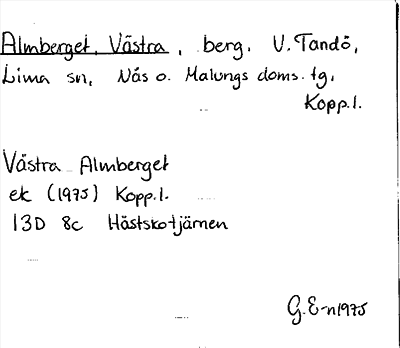 Almberget, Västra, berg, V. Tandö,
Lima sn, Nås o. Malungs doms. tg,
Kopp. l.
Västra Almberget
ek (1975) Kopp. l.
13D 8c Hästskotjärnen
G. E-n 1975